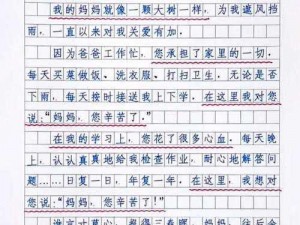 我的妈妈就像一颗大树一样，为我遮风挡
雨，一直以来对我关爱有加。
因为爸爸工作忙，您承担了家里的一切，
每天买菜做饭、洗衣服、打扫卫生，无论是否
下雨，每天按时接送我上下学，在这里我对您
说："妈妈，您辛苦了。"
在我的学习上，您花了很多心血。每天晚
上，认认真真地给我检查作业，耐心地解答问
题……日复一日，年复一年。在这里，我想对
您说："妈妈，您辛苦了！"